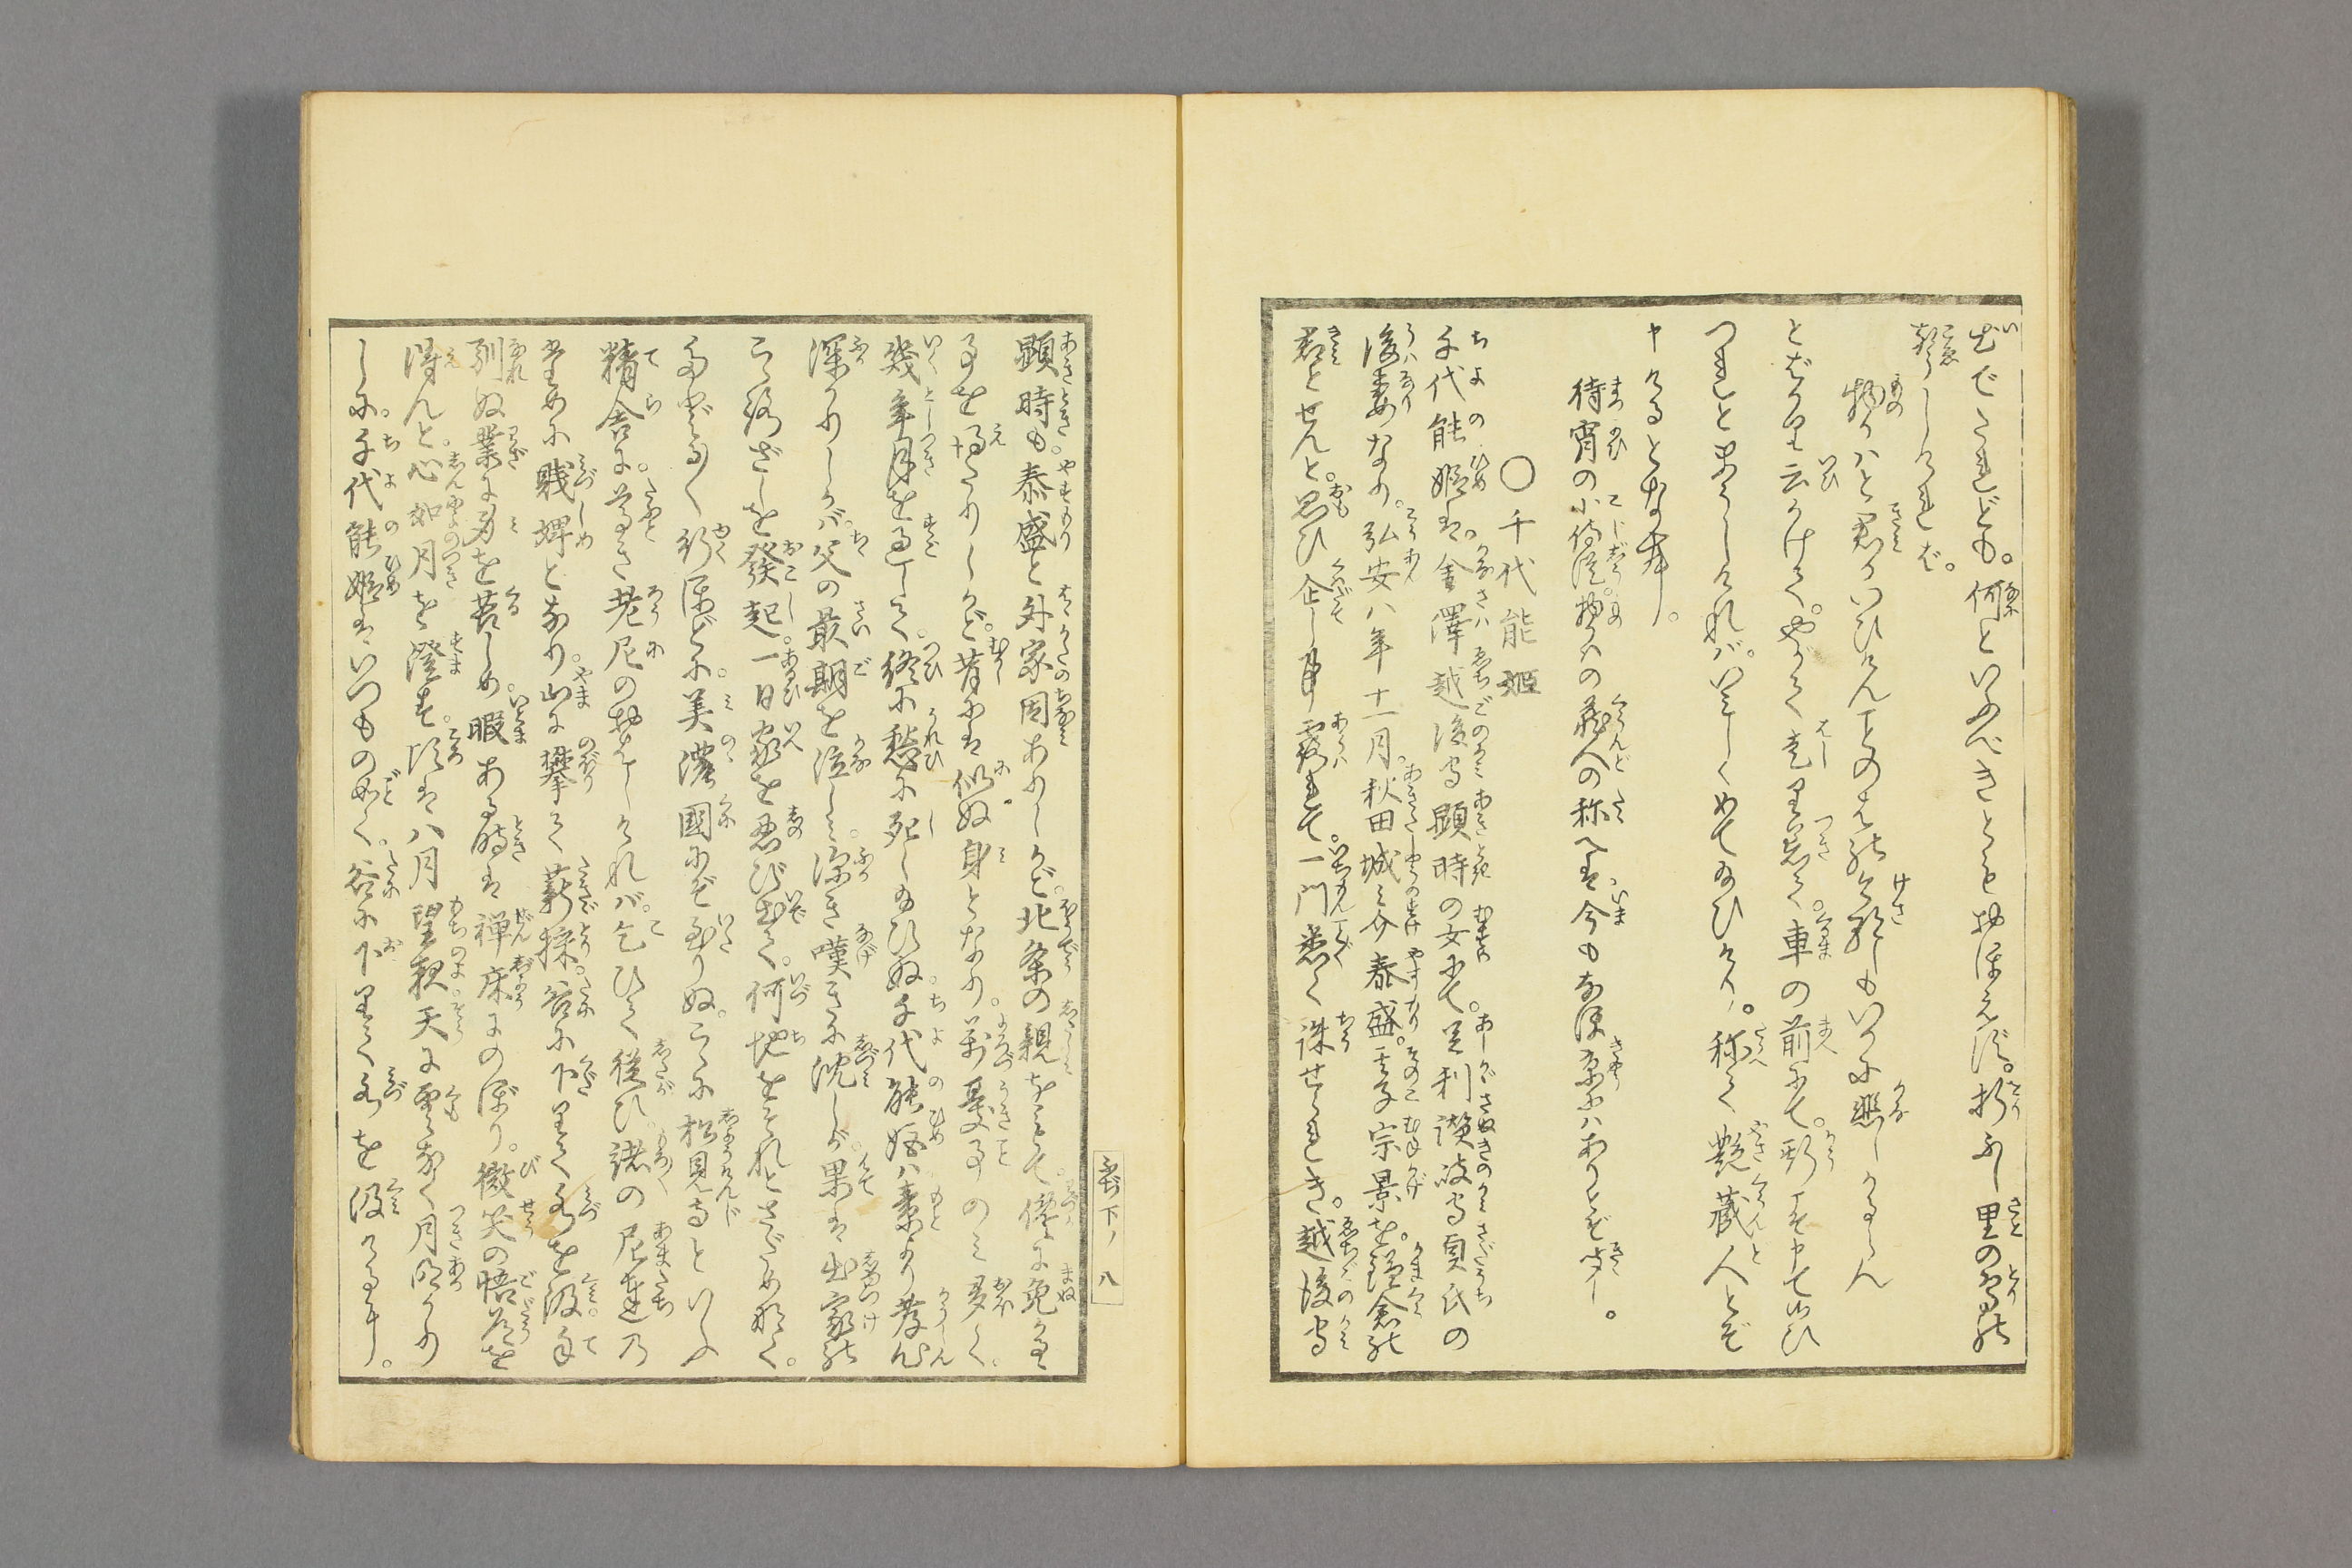 出でたれども。何といふべきことともおぼえず。折ふし里の鳥の
声しければ。
物かはと君がいひけん鳥のねの今朝しもいかに悲しかるらん
とばかり云かけて。やがて走り着て。車の前にて。かう〳〵と申て候ひ
つれと申しければ。いみじくめで給ひけり。称て艶蔵人とぞ
申けるとなむ。
待宵の小侍従。物かはの蔵人の称へは。今もなほ京にはありとぞ聞し。
〇千代能姫
千代能姫は。金澤越後守顕時の女にて。足利讃岐守貞氏の
後妻なり。弘安八年十一月。秋田城之介泰盛。其子宗景を。鎌倉の
君とせんと。思ひ企し事露れて。一門悉く誅せられき。越後守
顕時も。泰盛と外家因ありしかど。北条の親をもて。僅に免かる
事を得たりしかど。昔には似ぬ身となり。萬憂事のみ多く。
幾年月を過して。終に愁に死し給ひぬ。千代能姫は素より孝心
深かりしかば。父の最期を泣しみ。深き嘆きに沈しが。果は出家の
こゝろざしを発起し。一日家を忍び出て。何地をそれとさだめなく。
たどる〳〵行ほどに。美濃國にぞ至りぬ。こゝに松見寺といふ
精舎に。尊き老尼のおはしければ。乞ひて従ひ。諸の尼達の
為めに賎婢となり。山に攀て薪採。谷に下りて水を汲。手
馴ぬ業に身を苦しめ。暇ある時は禅床にのぼり。微笑の悟道を
得んと。心如月を澄す。頃は八月望夜天に雲なく月明かり
しに。千代能姫はいつもの如く。谷に下りて水を汲けるに。
下ノ八